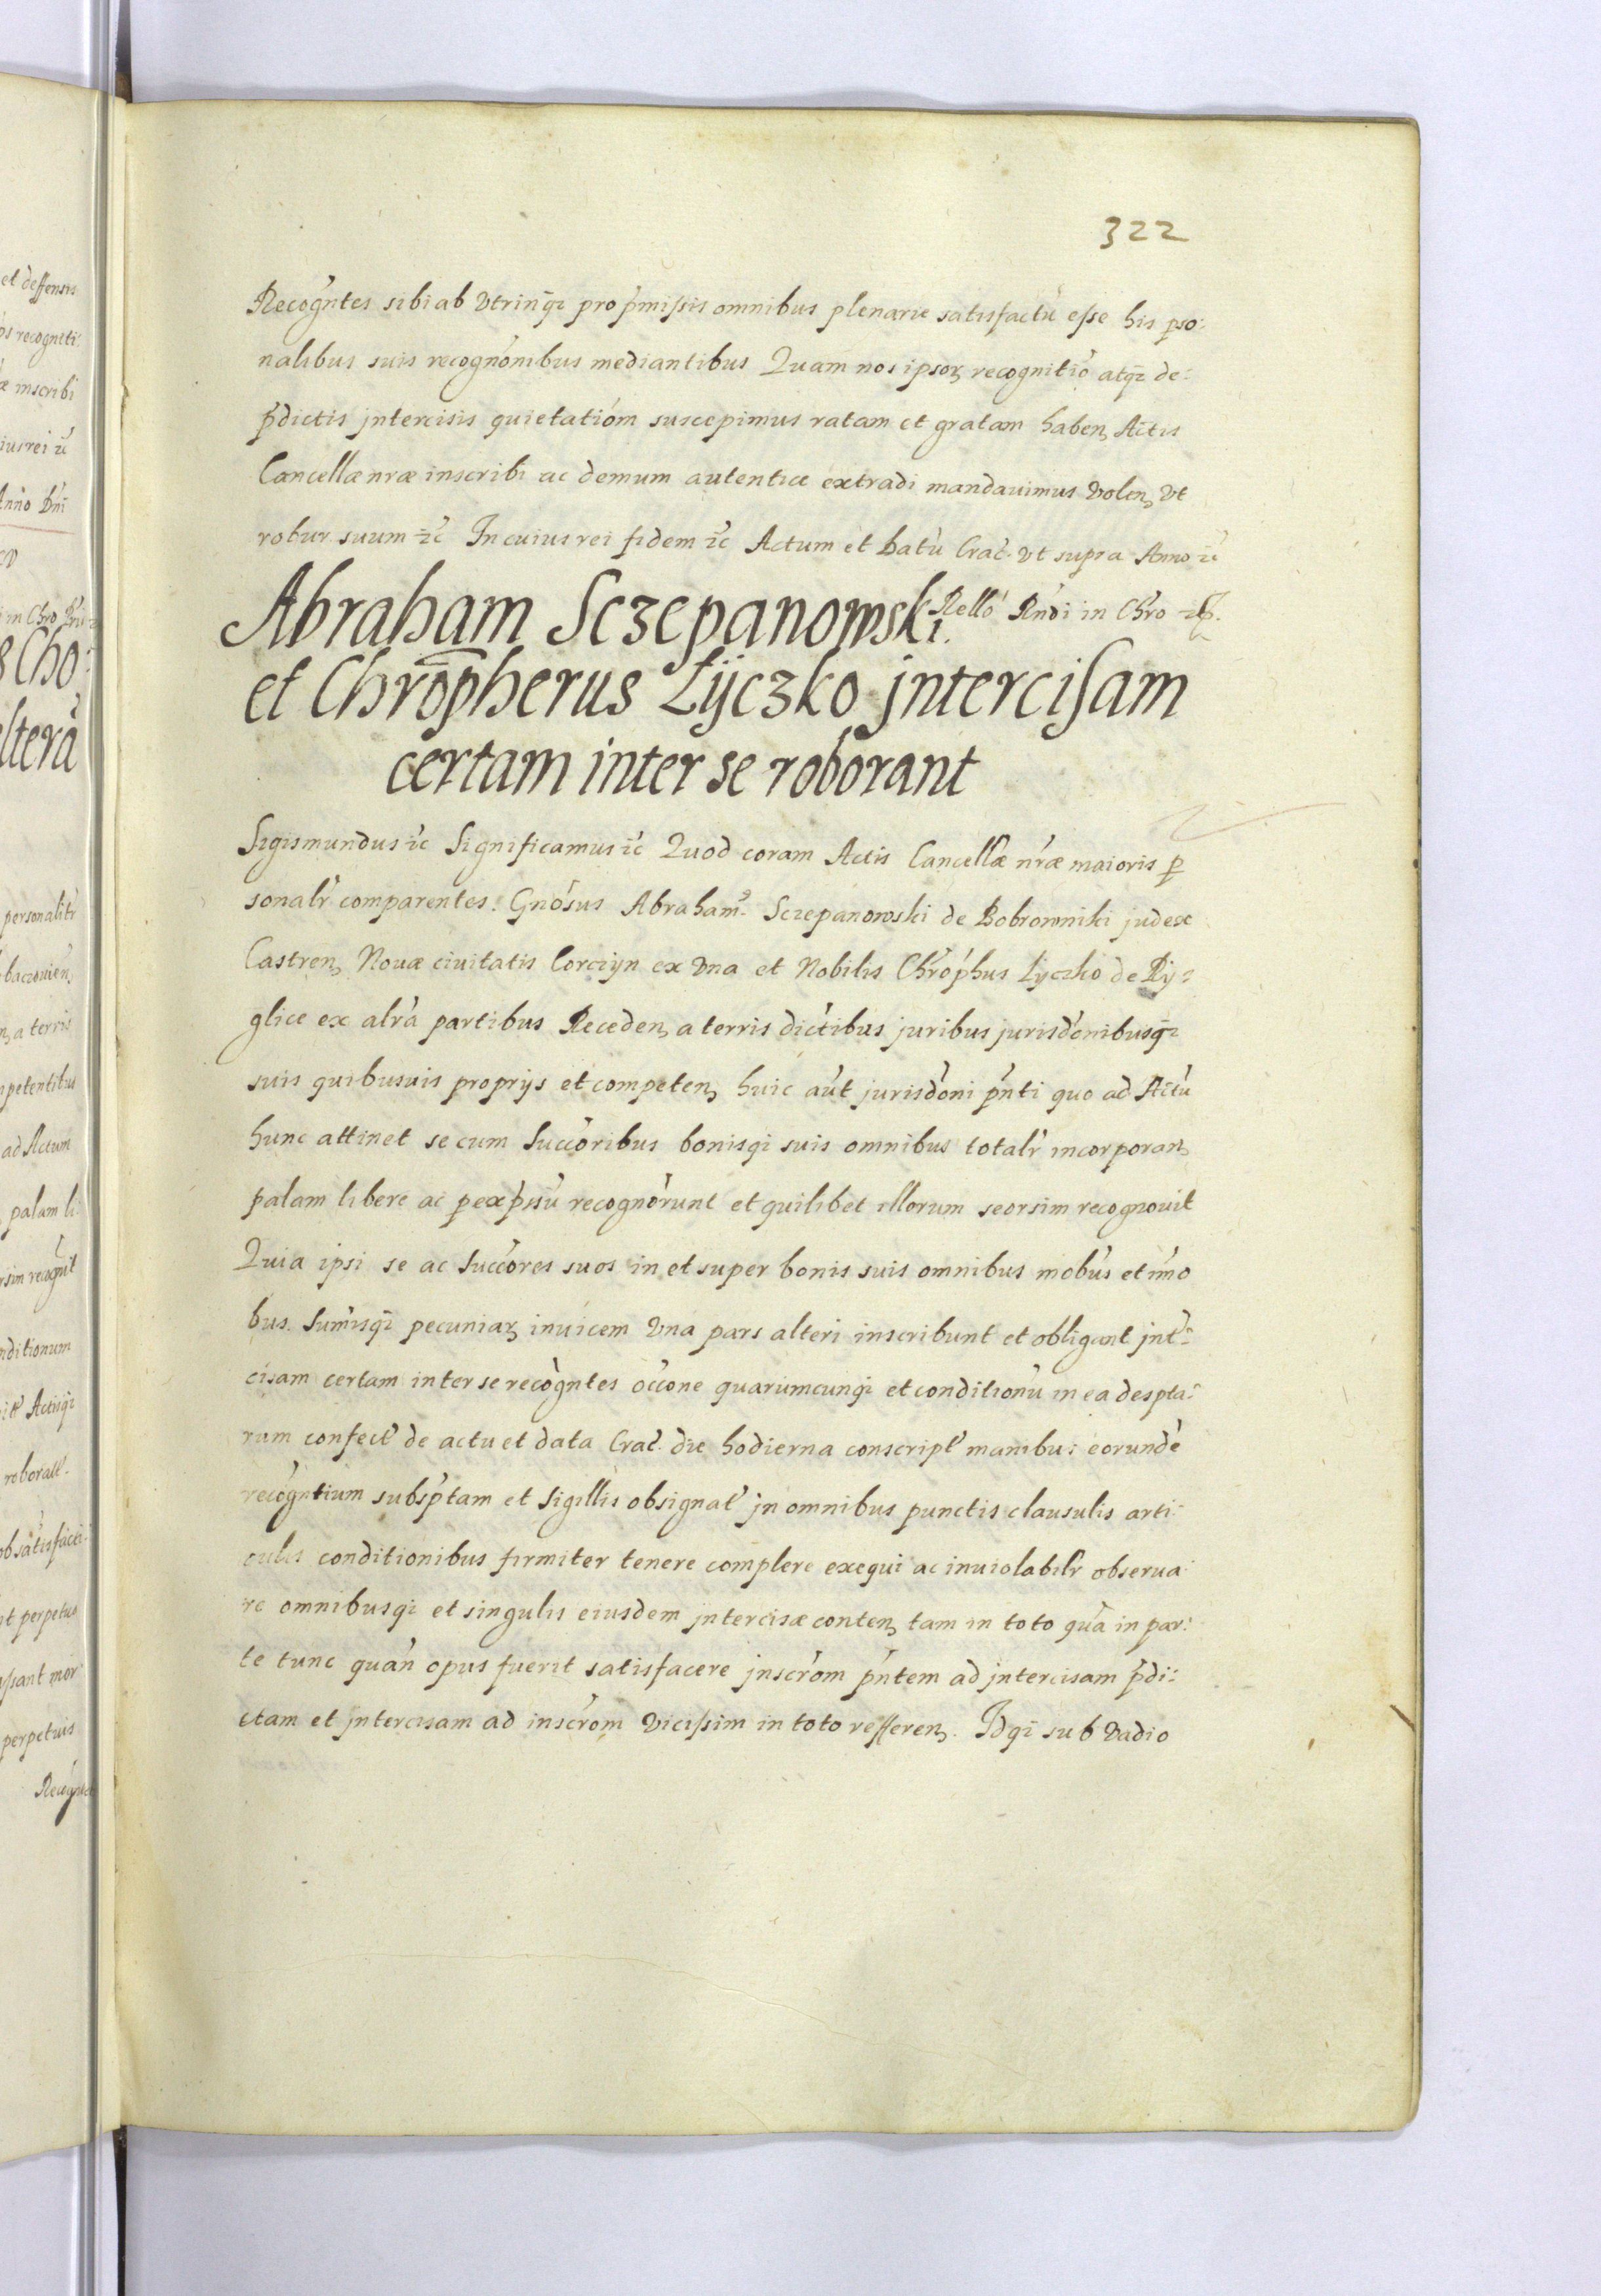 322
Recogñtes sibi ab vtrinq̃ pro p̃missis omnibus plenarie satisfactũ esse his p̱so:
nalibus suis recognõnibus mediantibus Quam nos ipsoꝝ recognitiõ atq̃ de:
p̃dictis jntercisis quietatiõm suscepimus ratam et gratam haben, Actis
Cancellæ nræ inscribi ac demum autentice extradi mandauimus volen, vt
robur suum ꝛc̃ In cuius rei fidem ꝛc̃ Actum et Datũ Crac̃. vt supra Anno ꝛc̃
Rellõ Rñdi in Chro ꝛ
Abraham Sczepanowski.
et Chrõpherus Lÿczko jntercisam
certam inter se roborant
Sigismundus ꝛc̃ Significamus ꝛc̃ Quod coram Actis Cancellæ nr̃æ maioris p̱
sonalr̃ comparentes. Gnõsus Abraham9. Sczepanowski de Bobrowniki judex
Castren, Nouæ ciuitatis Corczyn ex vna et Nobilis Chrõphus Lyczko de Ry:
glice ex alr̃a partibus Receden, a terris dictibus juribus jurisdõnibusq̃
suis quibusuis proprijs et competen, huic aũt jurisdõni p̃nti quo ad Actũ
hunc attinet se cum Succõribus bonisq̃ suis omnibus totalr̃ incorporan,
palam libere ac p̱ exp̃ssũ recognõrunt et quilibet illorum seorsim recognouit
Quia ipsi se ac Succõres suos in et super bonis suis omnibus mobũs et im̃o
bus. Sum̃isq̃ pecuniaꝝ inuicem vna pars alteri inscribunt et obligant jnt̃:
cisam certam inter se recògntes occõne quarumcunq̃ et conditionũ in ea despta:
rum confect̃ de actu et data Crac̃. die hodierna conscript̃ manibus eorundẽ
recogñtium subsp̃tam et Sigillis obsignat̃ jn omnibus punctis clausulis arti:
culis conditionibus firmiter tenere complere exequi ac inuiolabilr̃ obserua
re omnibusq̃ et singulis eiusdem jntercisæ conten, tam in toto quã in par:
te tunc quañ opus fuerit satisfacere jnscr̃om p̃ntem ad jntercisam p̃di:
ctam et jntercisam ad inscr̃om vicissim in toto refferen, Idq̃ sub vadio